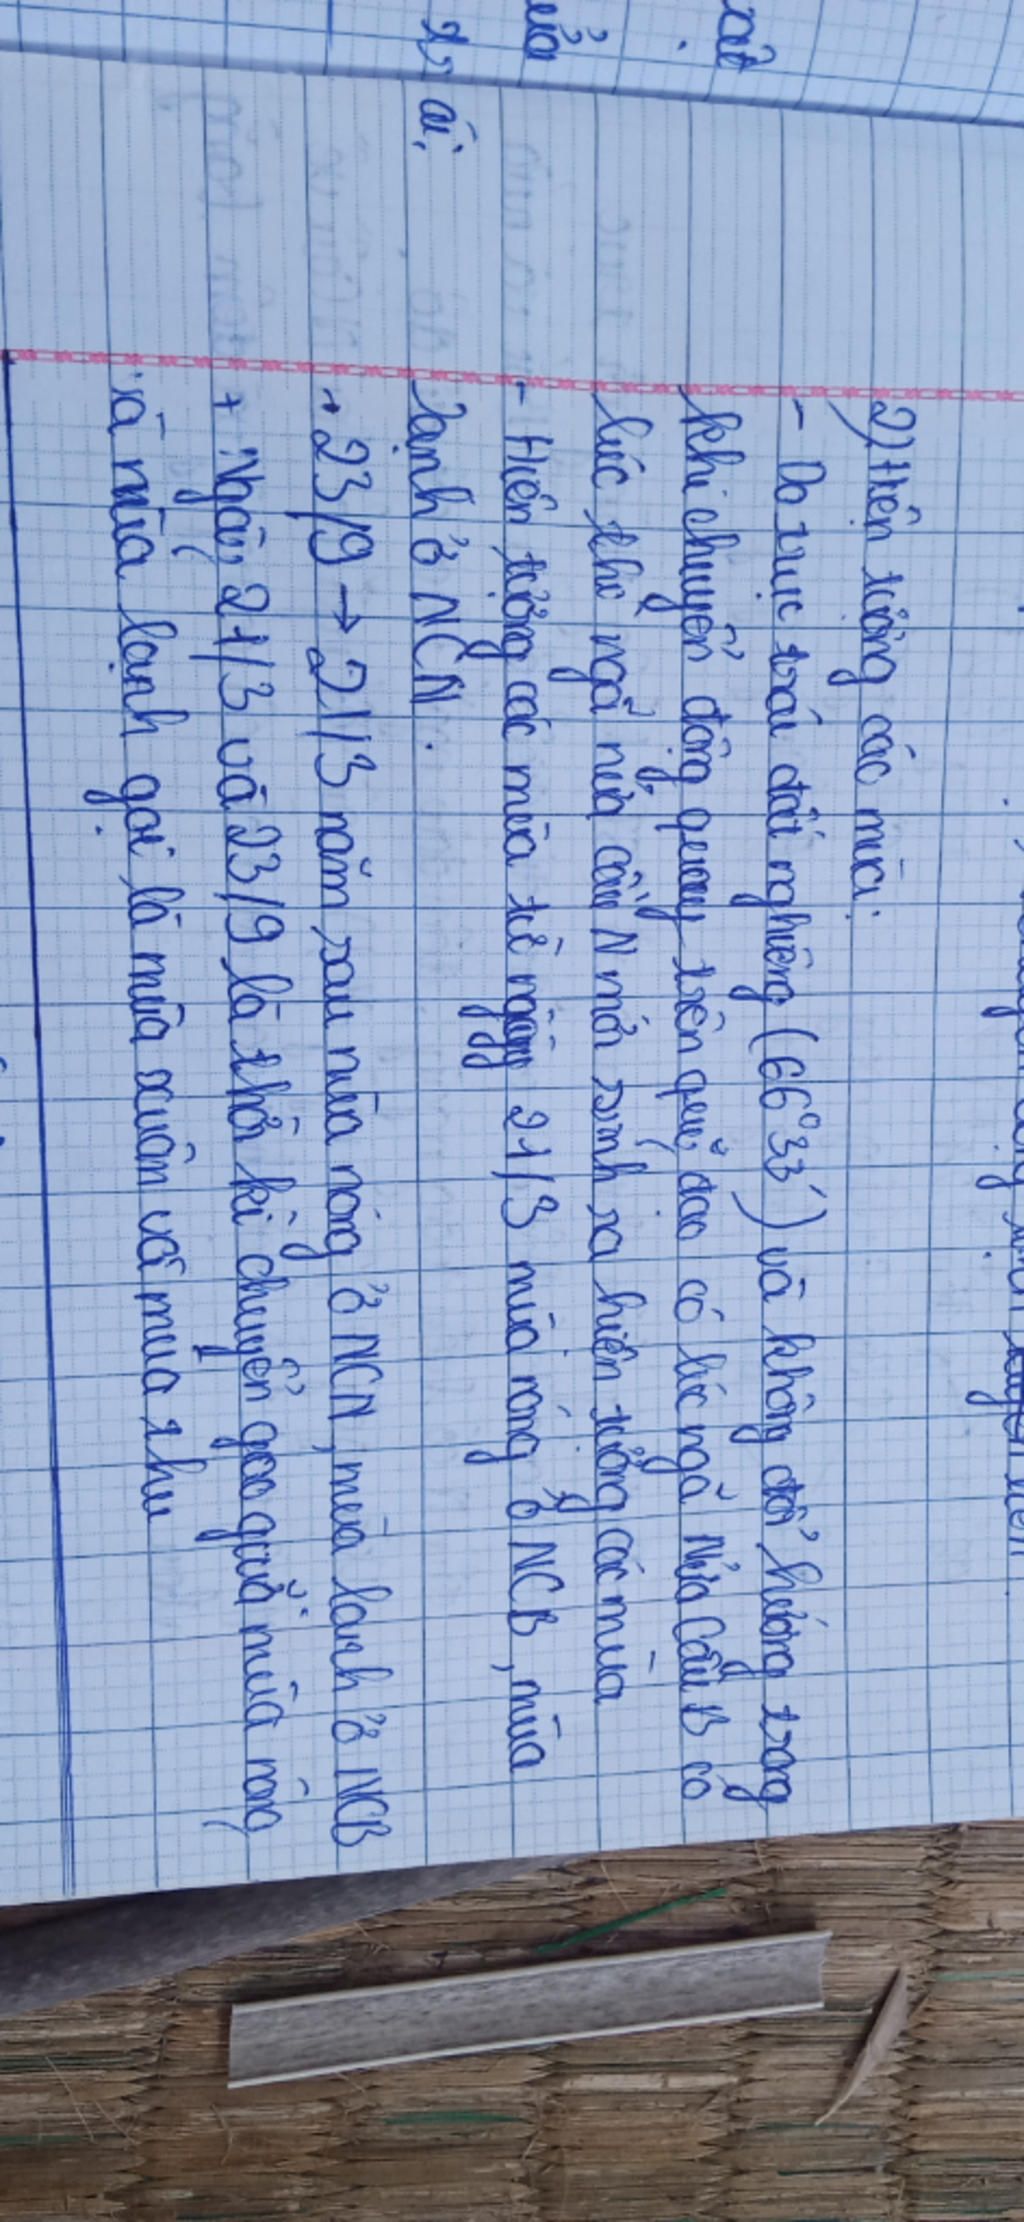 2) Hiện tượng các mùa:
- Do trục trái đất nghiêng (66°33') và không đổi hướng trong
khi chuyển động quay trên quỹ đạo có lúc ngả Nửa Cầu B có
lúc thì ngả nửa cầu N mới sinh ra hiện tượng các mùa
- Hiện tượng các mùa từ ngày 21/3 mùa nóng ở NCB, mùa
lạnh ở NCN.
+ 23/9 → 21/3 năm sau mùa nóng ở NCN, mùa lạnh ở NCB
+ Ngày 21/3 và 23/9 là thời kì chuyển giữa mùa nóng
và mùa lạnh gọi là mùa xuân và mùa thu